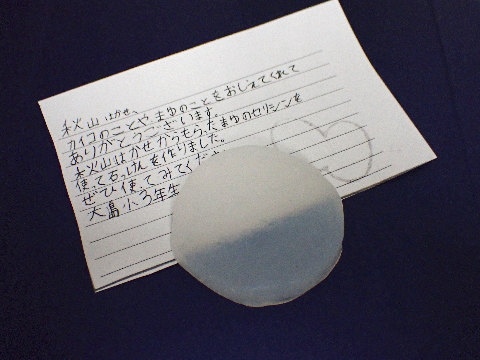 秋山はかせへ
カイコのことや、まゆのことをおしえてくれて
ありがとうございます。
秋山はかせからもらったまゆのセリシンを
使って石けんを作りました。
ぜひ使ってみてくださ
大島小3年生